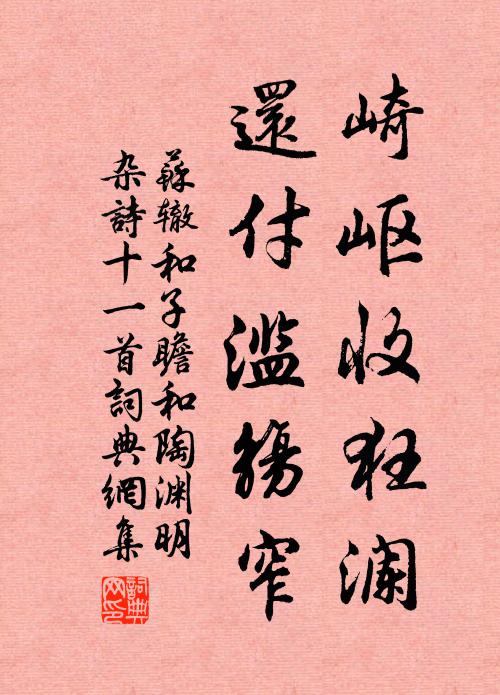 崎岖收狂澜
還付滥觴窄
蘇辙和子瞻和陶渊明
杂詩十一首詞典網集
詞典
网印